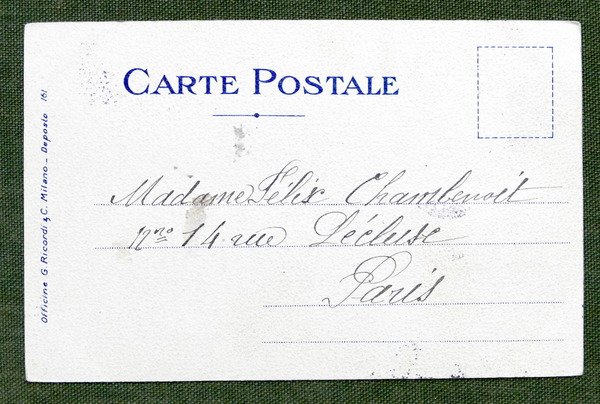 CARTE POSTALE
Madame Félix Chambenoit
nno 14 rue Lécluse
Paris
Officine G. Ricordi & C. Milano - Deposto 161